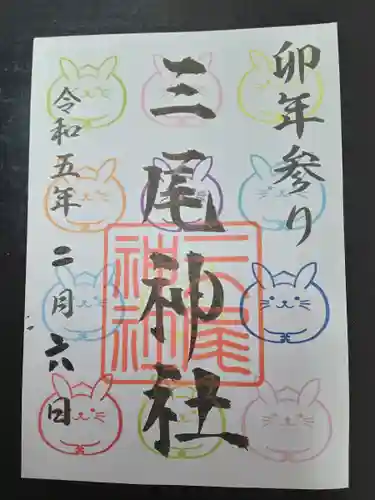 卯年参り
三尾神社
令和五年二月六日
三尾神社